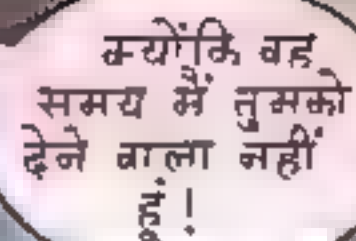 क्योंकि वह
समय मैं तुमको
देने वाला नहीं
हूं।